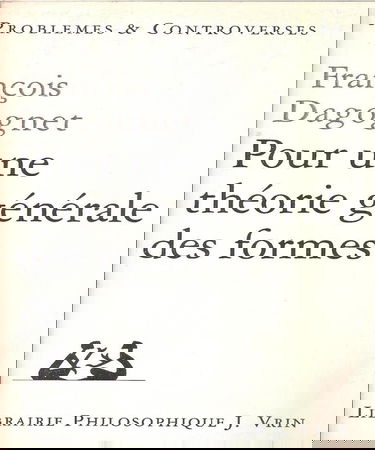 PROBLEMES & CONTROVERSES
François
Dagognet
Pour une
théorie générale
des formes
LIBRAIRIE PHILOSOPHIQUE J. VRIN